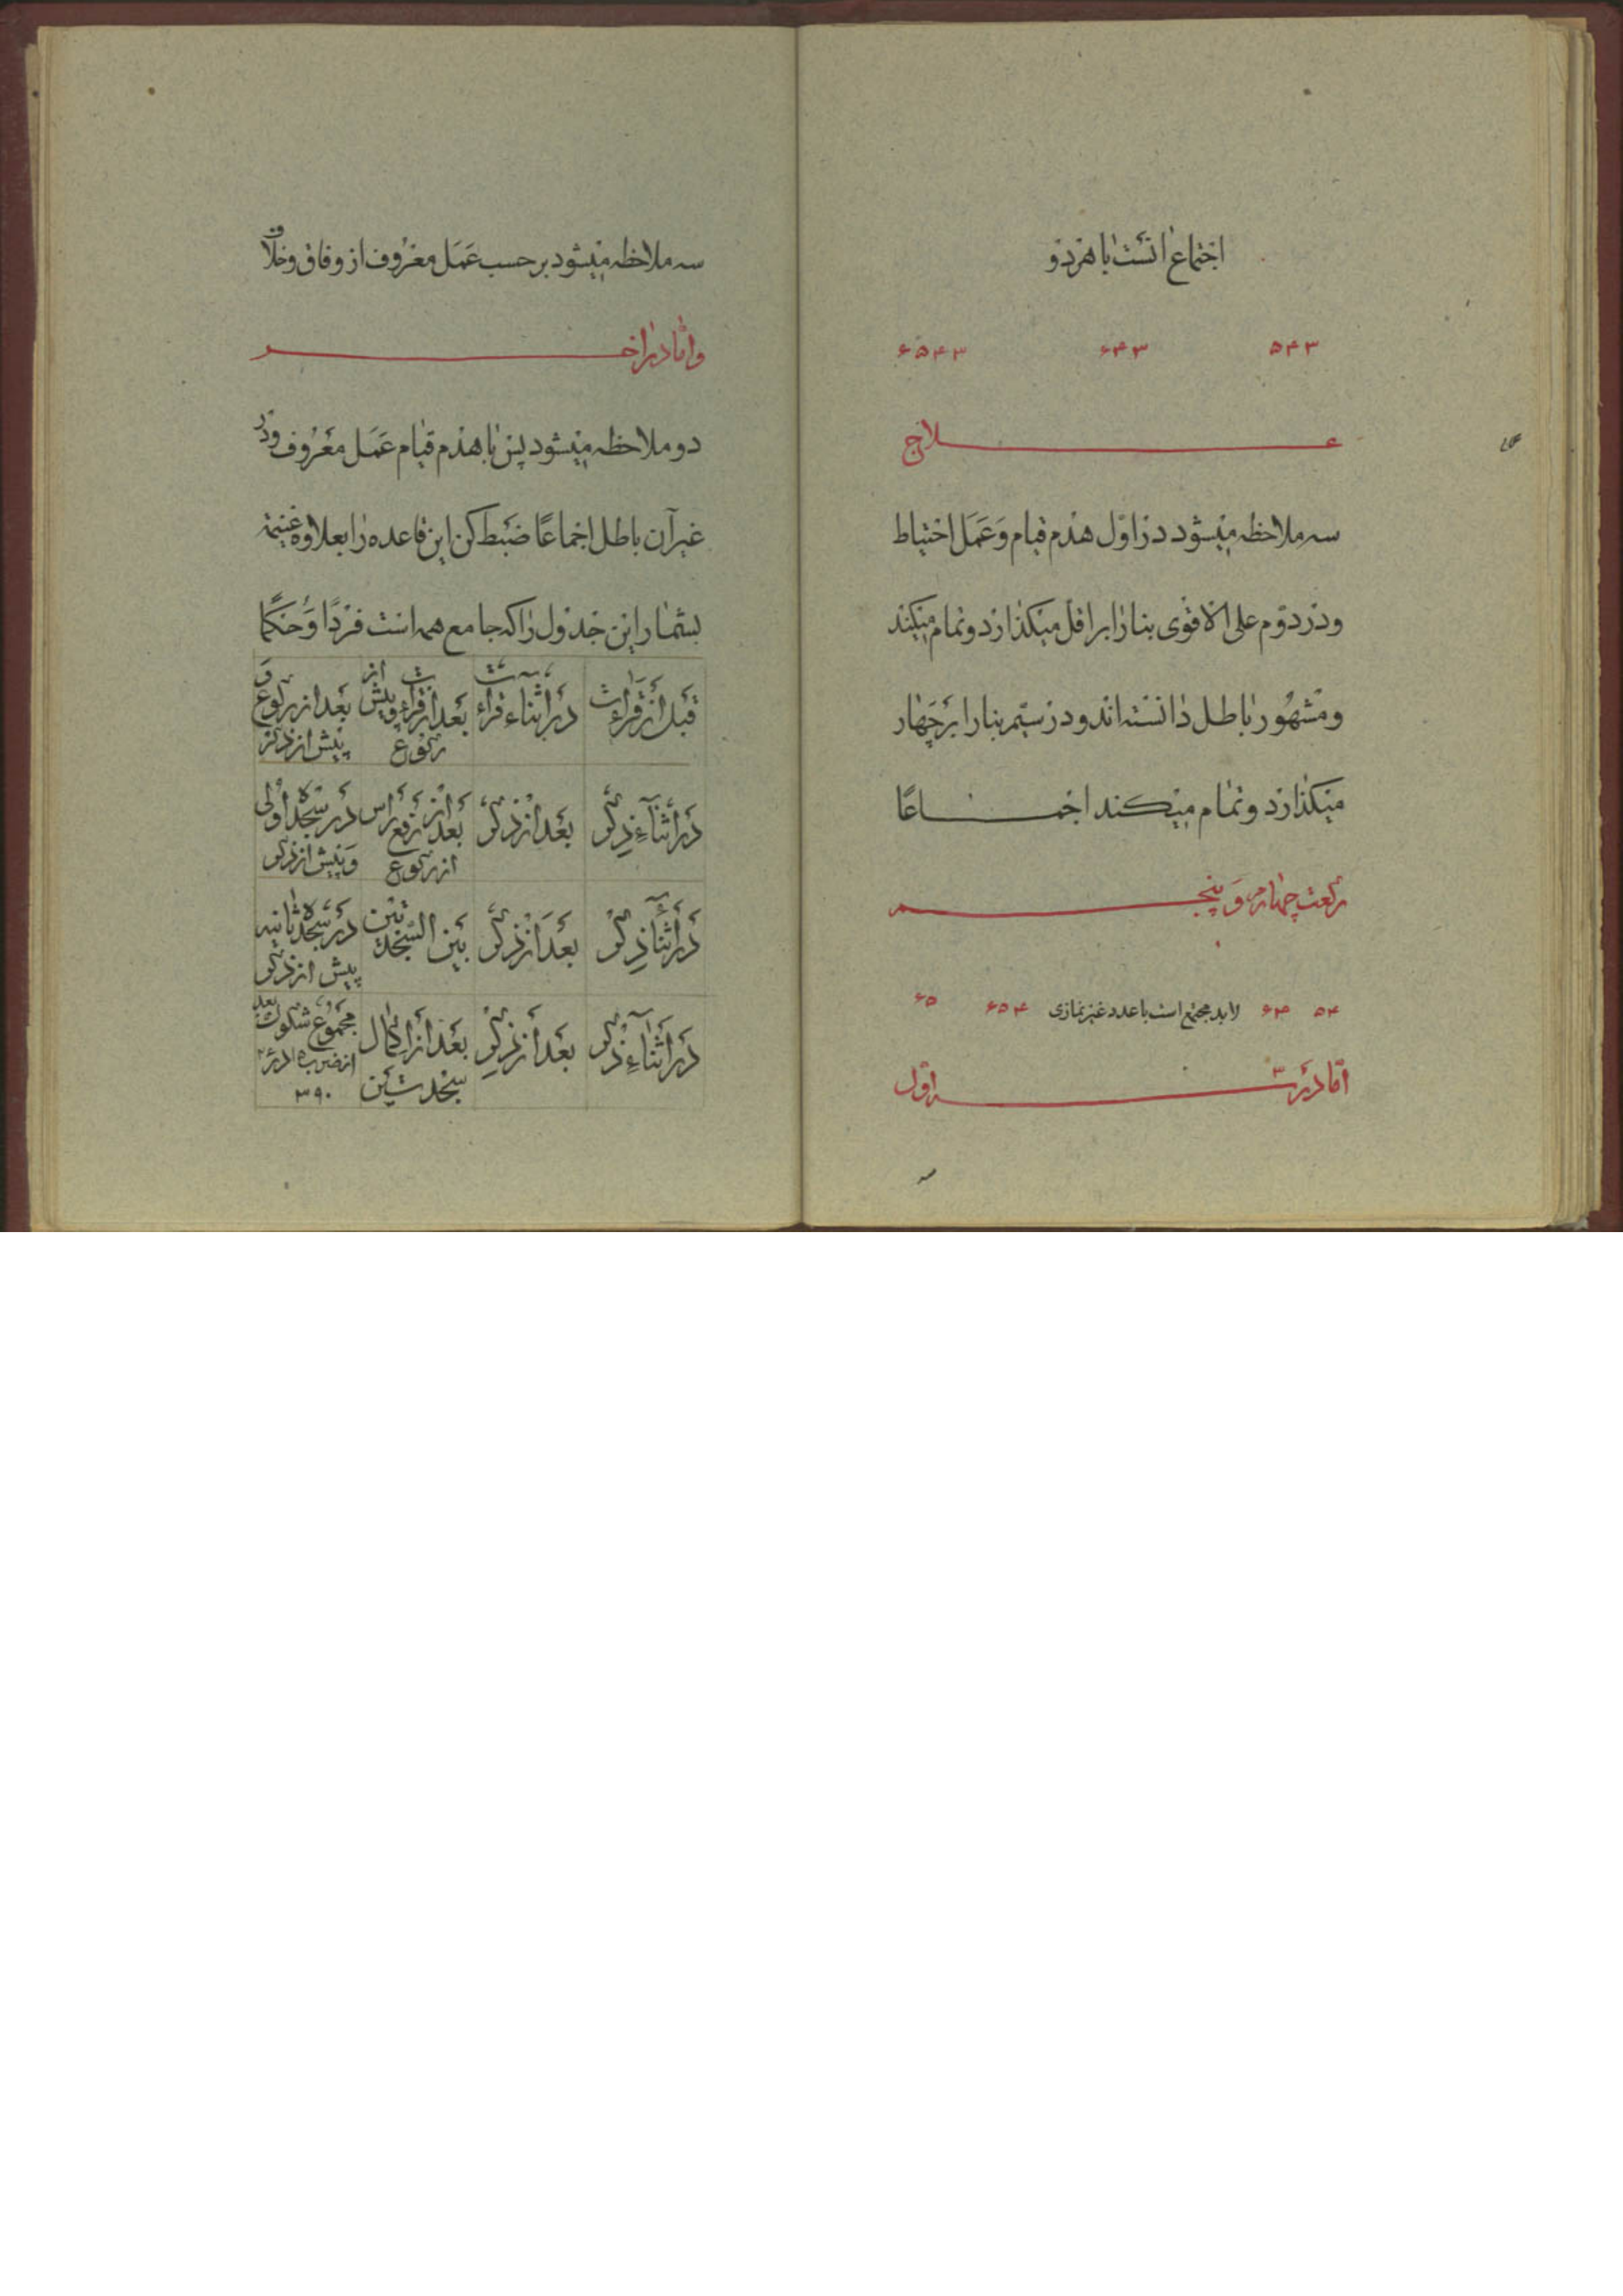 اجتماع انست با هر دو
۵۴۳ ۶۴۳ ۶۵۴۳
علاج
سه ملاحظه میشود در اوّل هدم قیام وَعَمَل احتیاط
و در دوّم علی الاقوی بنا را بر اقل میکذارد و تمام میکند
و مشهُور باطل دانسته‌اند و در سیّم بنا را بر چَهار
میکذارد و تمام میکند اجماعًا
رکعت چهارم وَ پنجم
۵۴ ۶۴ لابد مجتمع است با عدد غیر نمازی ۶۵۴ ۶۵
امّا در سه اوّل
سه
سه ملاحظه میشود بر حسب عَمَل معرُوف از وفاق و خلاف
و امّا در اخر
دو ملاحظه میشود پس با هدم قیام عَمَل معرُوف و در
غیر آن باطل اجماعًا ضبط کن این قاعده را بعلاوه غنیمة
بشمار این جدول را که جامع همه است فردًا وَحکمًا
قبل از قراءت در اثناء قراءت بعد از قراءت و پیش از رکوع بعد از رکوع و پیش از ذکر
در اثناء ذکر بعد از ذکر بعد از رفع راس از رکوع در سجدۀ اولی وَ پیش از ذکر
در اثنا ذکر بعد از ذکر بین السجدتین در سجدۀ ثانیه پیش از ذکر
در اثناء ذکر بعد از ذکر بعد از اکمال سجدتین مجموع شکوک بعد از ضرب ۱۵ در ۲۶ ۳۹۰